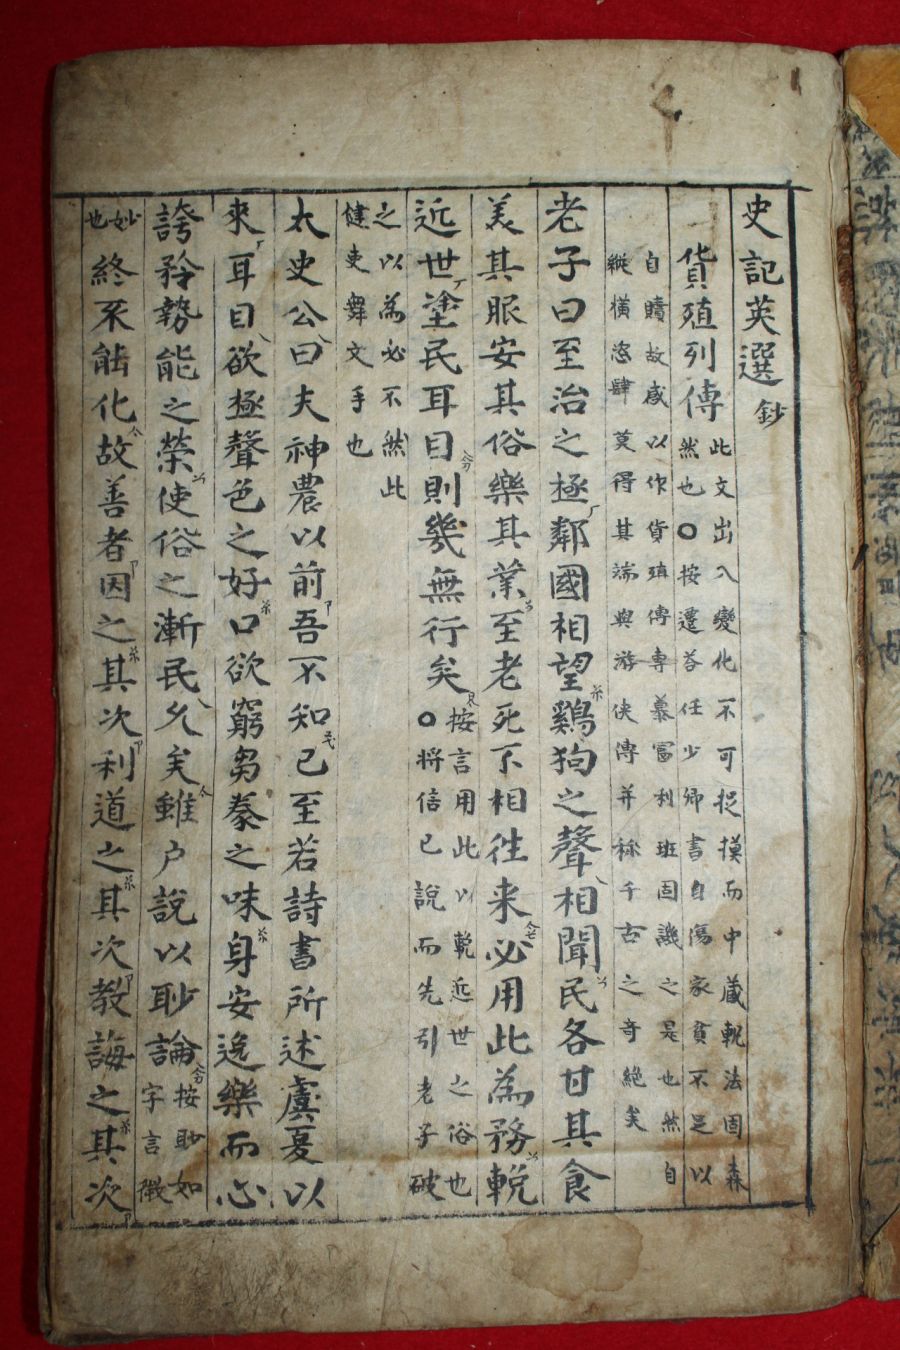 史記英選 鈔
貨殖列傳 此文出入變化不可捉摸而中藏軌法固森
然也○按遷荅任少卿書自傷家貧不足以
自贖故感以作貨殖傳專慕富利班固譏之是也然自
縱橫恣肆莫得其端與游俠傳并稱千古之奇絶矣
老子曰至治之極鄰國相望鷄狗之聲相聞民各甘其食
美其服安其俗樂其業至老死不相往来必用此為務輓
近世塗民耳目則幾無行矣 按言用此以輓近世之俗也
○将信已說而先引老子破
之以為必不然此
健吏舞文手也
太史公曰夫神農以前吾不知已至若詩書所述虞夏以
來耳目欲極聲色之好口欲窮芻豢之味身安逸樂而心
誇矜勢能之榮使俗之漸民久矣雖户說以眇論 按眇如
字言微
妙
也 終不能化故善者因之其次利道之其次教誨之其次